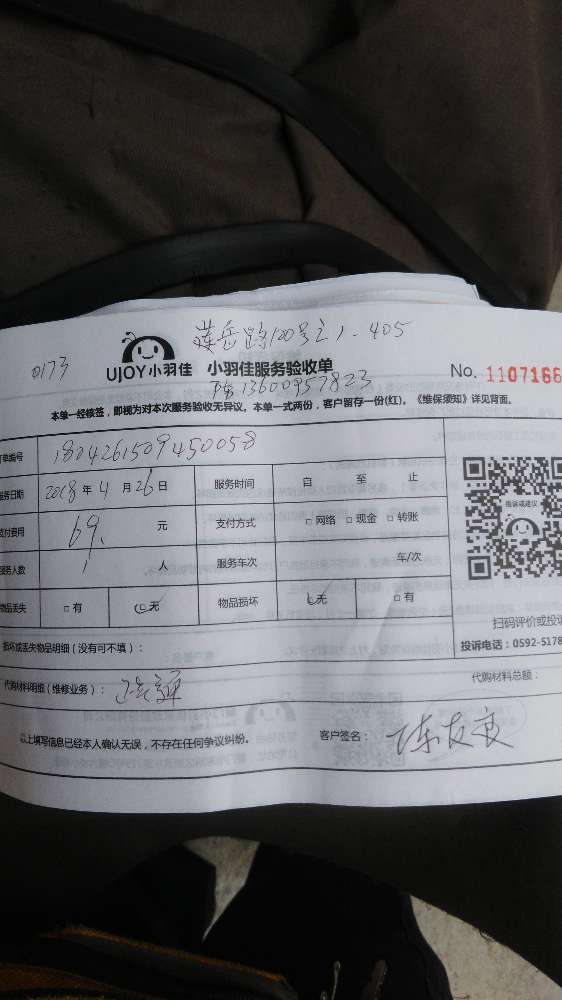 莲岳路100号之1-405
0173
UJOY小羽佳 小羽佳服务验收单 No. 1107166
13600957823
本单一经核签，即视为对本次服务验收无异议。本单一式两份，客户留存一份(红)。《维保须知》详见背面。
订单编号 1804261509450058
服务日期 2018年4月26日 服务时间 自 至 止
支付费用 69. 元 支付方式 □网络 □现金 □转账
服务人数 1 人 服务车次 车/次
物品丢失 □有 □无 物品损坏 □无 □有
投诉或建议
扫码评价或投诉
投诉电话：0592-5178
损坏或丢失物品明细（没有可不填）：
代购材料明细（维修业务）： 代购材料总额：
以上填写信息已经本人确认无误，不存在任何争议纠纷。 客户签名： 陈友良